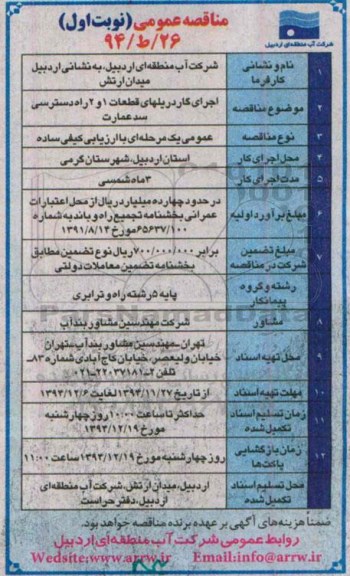 مناقصه عمومی (نوبت اول)
۹۴/ط/۲۶
شرکت آب منطقه‌ای اردبیل
۱ نام و نشانی کارفرما شرکت آب منطقه‌ای اردبیل، به نشانی اردبیل
میدان ارتش
۲ موضوع مناقصه اجرای گاردریلهای قطعات ۱ و ۲ راه دسترسی
سد عمارت
۳ نوع مناقصه عمومی یک مرحله‌ای با ارزیابی کیفی ساده
۴ محل اجرای کار استان اردبیل، شهرستان گرمی
۵ مدت اجرای کار ۳ ماه شمسی
۶ مبلغ برآورد اولیه در حدود چهارده میلیارد ریال از محل اعتبارات
عمرانی بخشنامه تجمیع راه و باند به شماره
۶۵۶۳۷/۱۰۰ مورخ ۱۳۹۱/۸/۱۳
۷ مبلغ تضمین شرکت در مناقصه برابر ۷۰۰/۰۰۰/۰۰۰ ریال نوع تضمین مطابق
بخشنامه تضمین معاملات دولتی
رشته و گروه پیمانکار پایه ۵ رشته راه و ترابری
۸ مشاور شرکت مهندسین مشاور بندآب
۹ محل تهیه اسناد تهران-مهندسین مشاور بندآب-تهران
خیابان ولیعصر، خیابان کاج آبادی شماره ۸۳-
تلفن ۲-۲۲۰۳۷۱۸۱-۰۲۱
۱۰ مهلت تهیه اسناد از تاریخ ۱۳۹۳/۱۱/۲۷ لغایت ۱۳۹۳/۱۲/۶
۱۱ زمان تسلیم اسناد تکمیل شده حداکثر تا ساعت ۱۰:۰۰ روز چهارشنبه
مورخ ۱۳۹۳/۱۲/۱۹
۱۲ زمان بازگشایی پاکت‌ها روز چهارشنبه مورخ ۱۳۹۳/۱۲/۱۹ ساعت ۱۱:۰۰
محل تسلیم اسناد تکمیل شده اردبیل، میدان ارتش، شرکت آب منطقه‌ای
اردبیل، دفتر حراست
ضمناً هزینه‌های آگهی بر عهده برنده مناقصه خواهد بود.
روابط عمومی شرکت آب منطقه‌ای اردبیل
Wedsite:www.arrw.ir Email:info@arrw.ir